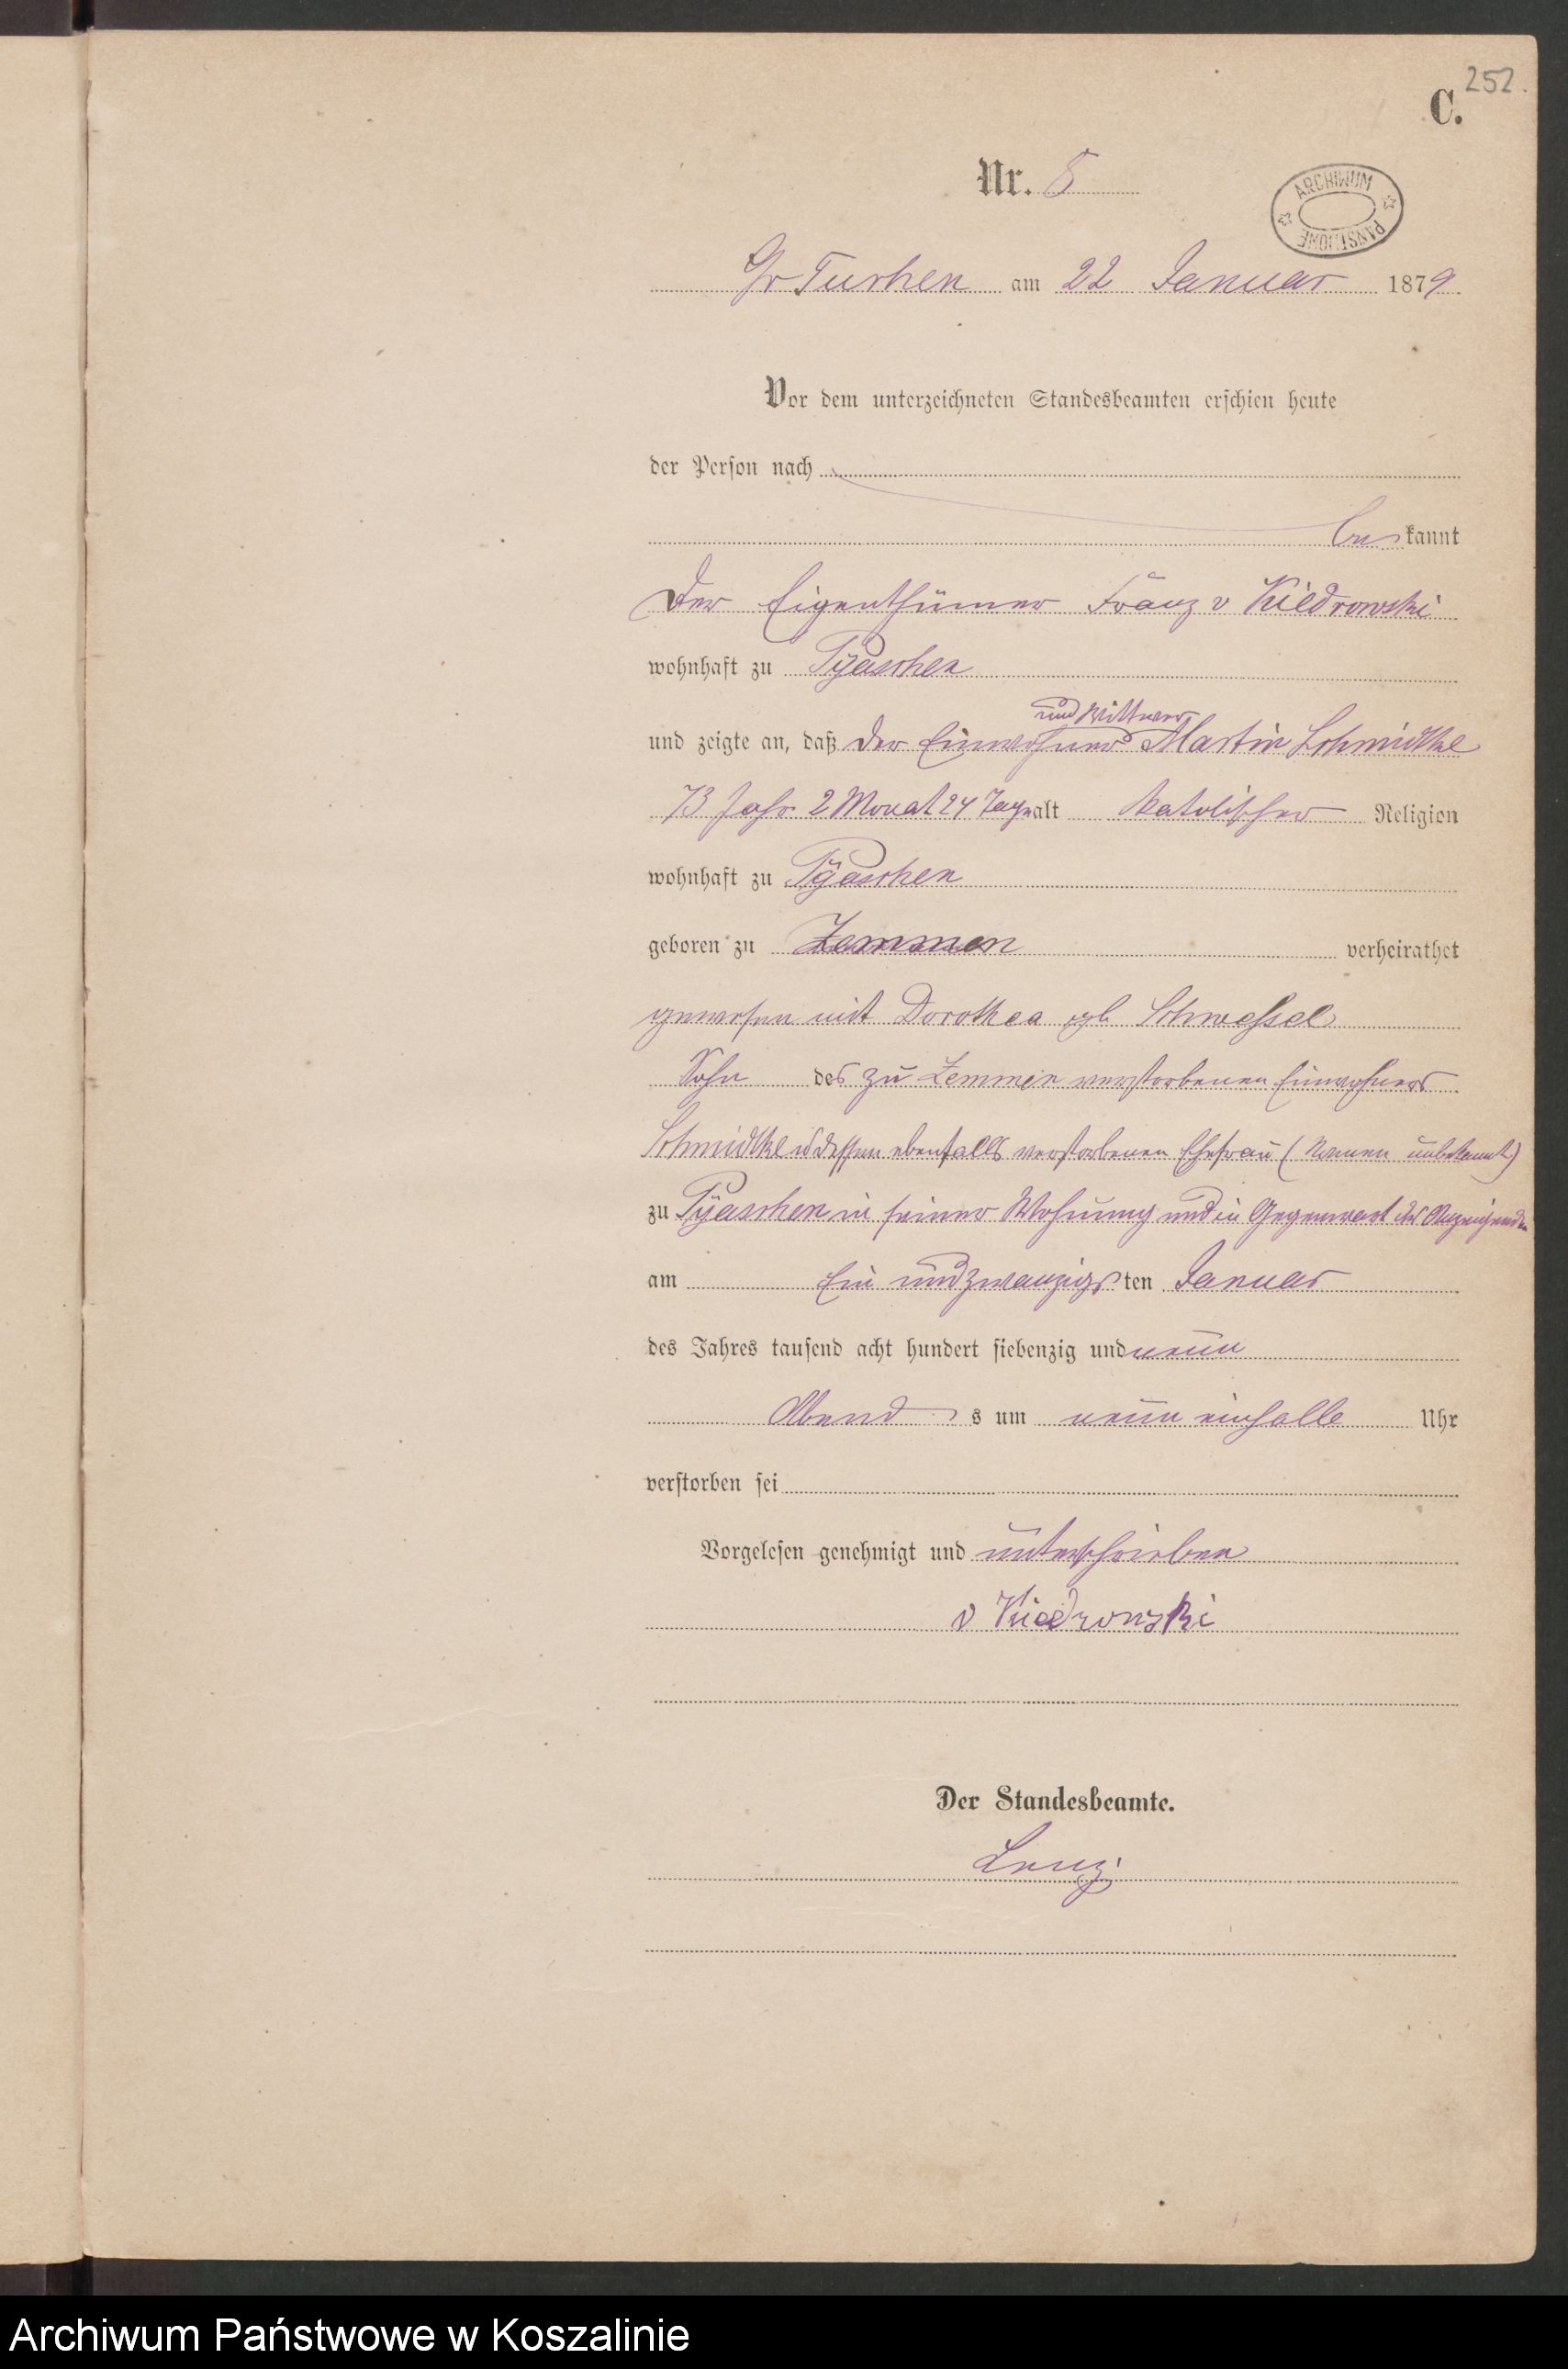 252.
C.
Nr. 5
ARCHIWUM PAŃSTWOWE
Gr Tuchen am 22 Januar 1879.
Vor dem unterzeichneten Standesbeamten erschien heute
der Person nach
be kannt
Der Eigenthümer Franz v Kiedrowski
wohnhaft zu Pyaschen
und Wittwer
und zeigte an, daß der Einwohner Martin Schmidtke
73 Jahr 2 Monat 24 Tage alt katolischer Religion
wohnhaft zu Pyaschen
geboren zu Zemmen verheirathet
gewesen mit Dorothea geb Schwessel
Sohn des zu Zemmen verstorbenen Einwohners
Schmidtke u dessen ebenfalls verstorbenen Ehefrau (Namen unbekannt)
zu Pyaschen in seiner Wohnung und in Gegenwart des Anzeigenden
am Ein und zwanzigsten Januar
des Jahres tausend acht hundert siebenzig und neun
Abend s um neun einhalb Uhr
verstorben sei
Vorgelesen genehmigt und unterschrieben
v Kiedrowski
Der Standesbeamte.
Lenz
Archiwum Państwowe w Koszalinie